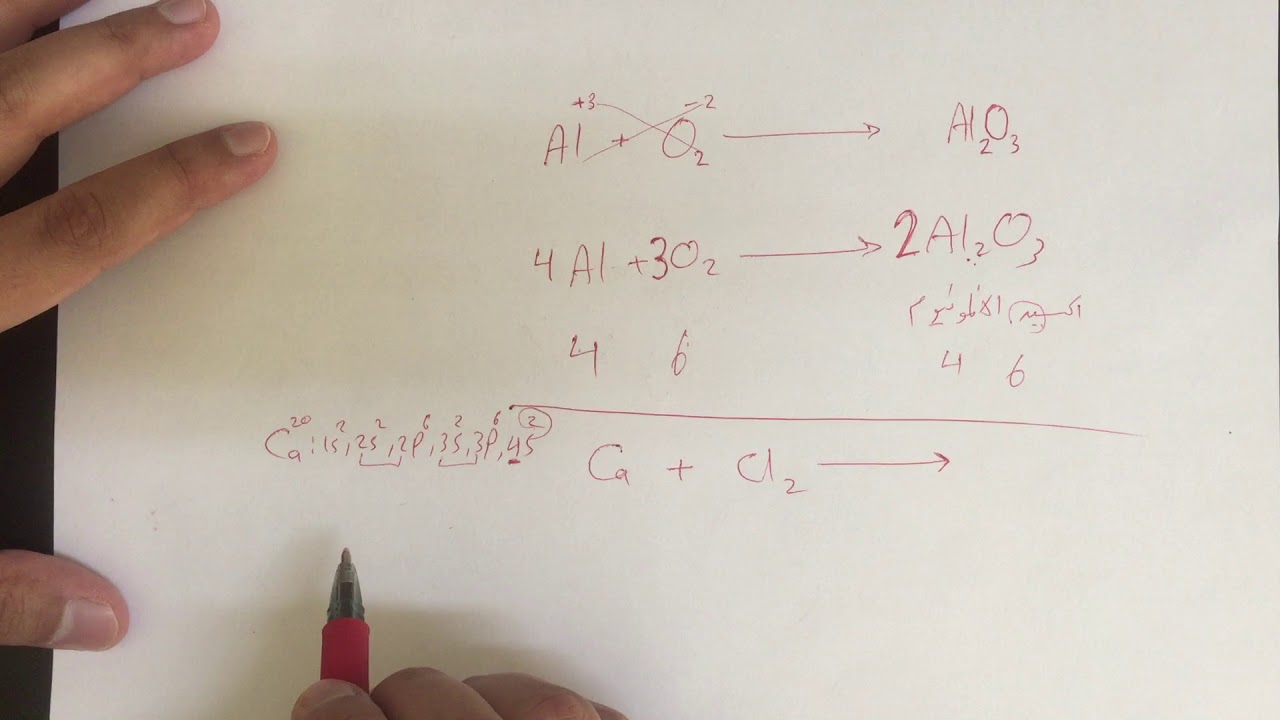 +3 -2
Al + O₂ ⟶ Al₂O₃
4Al + 3O₂ ⟶ 2Al₂O₃
اكسيد الألمونيوم
4 6 4 6
Ca²⁰: 1s², 2s², 2p⁶, 3s², 3p⁶, 4s²
Ca + Cl₂ ⟶